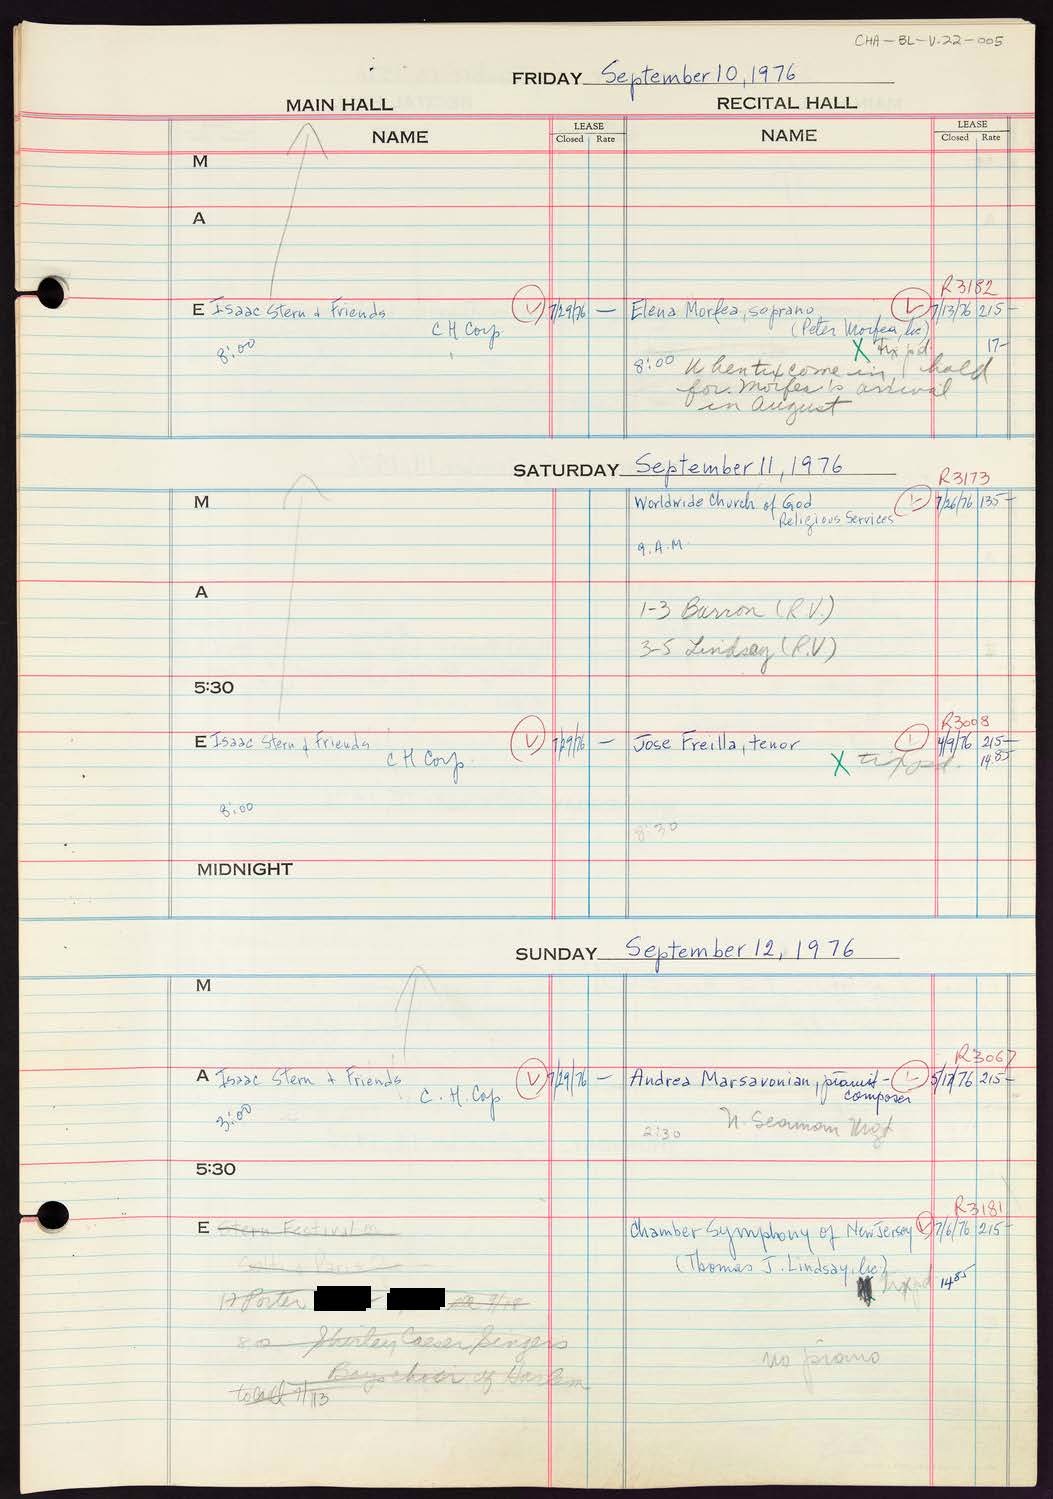 CHA-BL-V.22-005
FRIDAY September 10, 1976
MAIN HALL RECITAL HALL
NAME LEASE Closed Rate NAME LEASE Closed Rate
M
A
R3182
E Isaac Stern & Friends V 7/29/76 — Elena Morfea, soprano L 7/13/76 215—
C H Corp (Peter Morfea, lic)
8:00 X tix pd 17-
8:00 When tix come in, hold
for Morfea's arrival
in August
SATURDAY September 11, 1976
R3173
M Worldwide Church of God L 7/26/76 135—
Religious Services
9. A.M.
A
1-3 Barron (R.V.)
3-5 Lindsay (R.V)
5:30
R3008
E Isaac Stern & Friends V 7/29/76 — Jose Freilla, tenor L 4/9/76 215—
C H Corp. X tix pd. 14.85
8:00
8:30
MIDNIGHT
SUNDAY September 12, 1976
M
R3067
A Isaac Stern & Friends V 7/29/76 — Andrea Marsavonian, pianist- L 5/17/76 215—
C. H. Corp composer
3:00 N. Seaman Mgt
2:30
5:30
R3181
E Stern Festival Chamber Symphony of New Jersey V 7/6/76 215—
(Thomas J. Lindsay, lic)
tix pd 14.85
Porter
8 00 Shirley Caeser Singers
Boys choir of Harlem no piano
to call 7/13